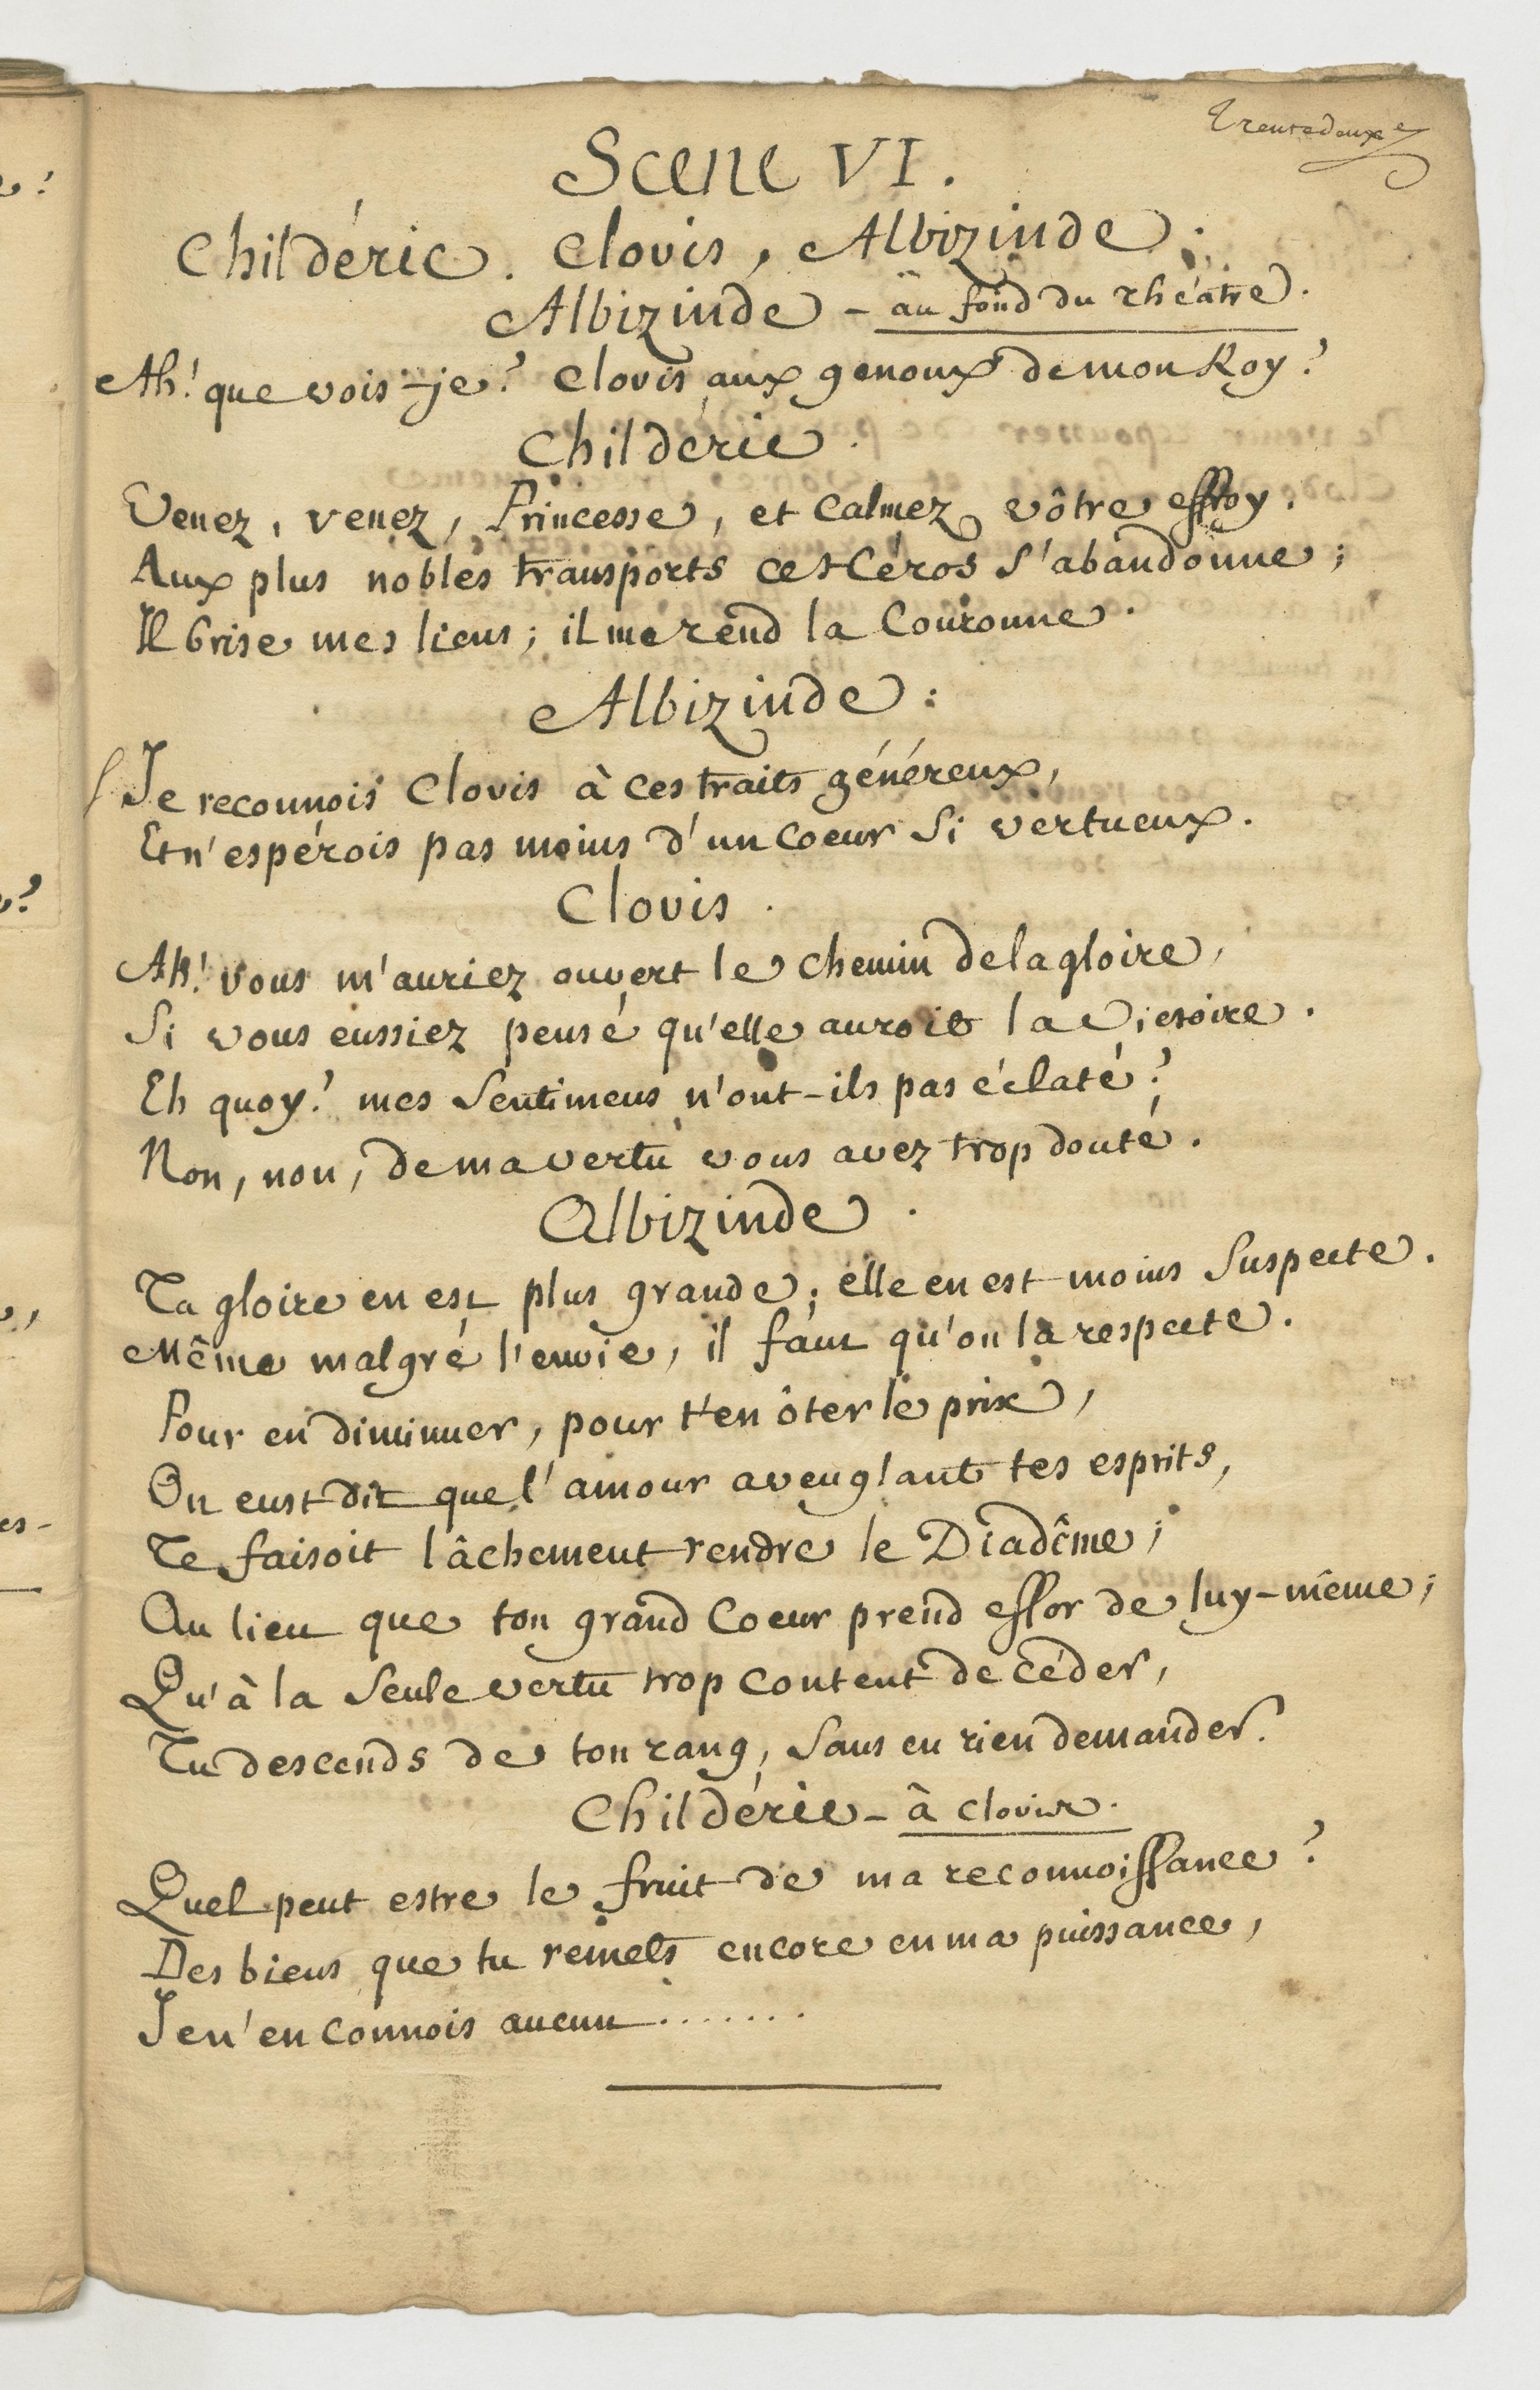 Trentedeuxe
Scene VI.
Childéric. Clovis, Albizinde.
Albizinde - au fond du théâtre.
Ah! que vois-je? Clovis aux genoux de mon Roy?
Childéric.
Venez, venez, Princesse, et Calmez vôtre effroy.
Aux plus nobles transports ce Héros s'abandonne;
Il brise mes liens; il me rend la Couronne.
Albizinde.
Je reconnois Clovis à ces traits généreux,
Et n'espérois pas moins d'un Coeur si vertueux.
Clovis.
Ah! vous m'auriez ouvert le chemin de la gloire,
Si vous eussiez pensé qu'elle auroit la Victoire.
Eh quoy? mes Sentimens n'ont-ils pas éclaté?
Non, non, de ma vertu vous avez trop douté.
Albizinde.
Ta gloire en est plus grande; elle en est moins Suspecte.
Même malgré l'envie, il faut qu'on la respecte.
Pour en diminuer, pour t'en ôter le prix,
On eust dit que l'amour aveuglant tes esprits,
Te faisoit lâchement rendre le Diadême;
Au lieu que ton grand Coeur prend essor de luy-même;
Qu'à la Seule vertu trop Content de céder,
Tu descends de ton rang, Sans en rien demander.
Childéric - à Clovis.
Quel peut estre le fruit de ma reconnoissance?
Des biens que tu remets encore en ma puissance,
Je n'en Connois aucun.......